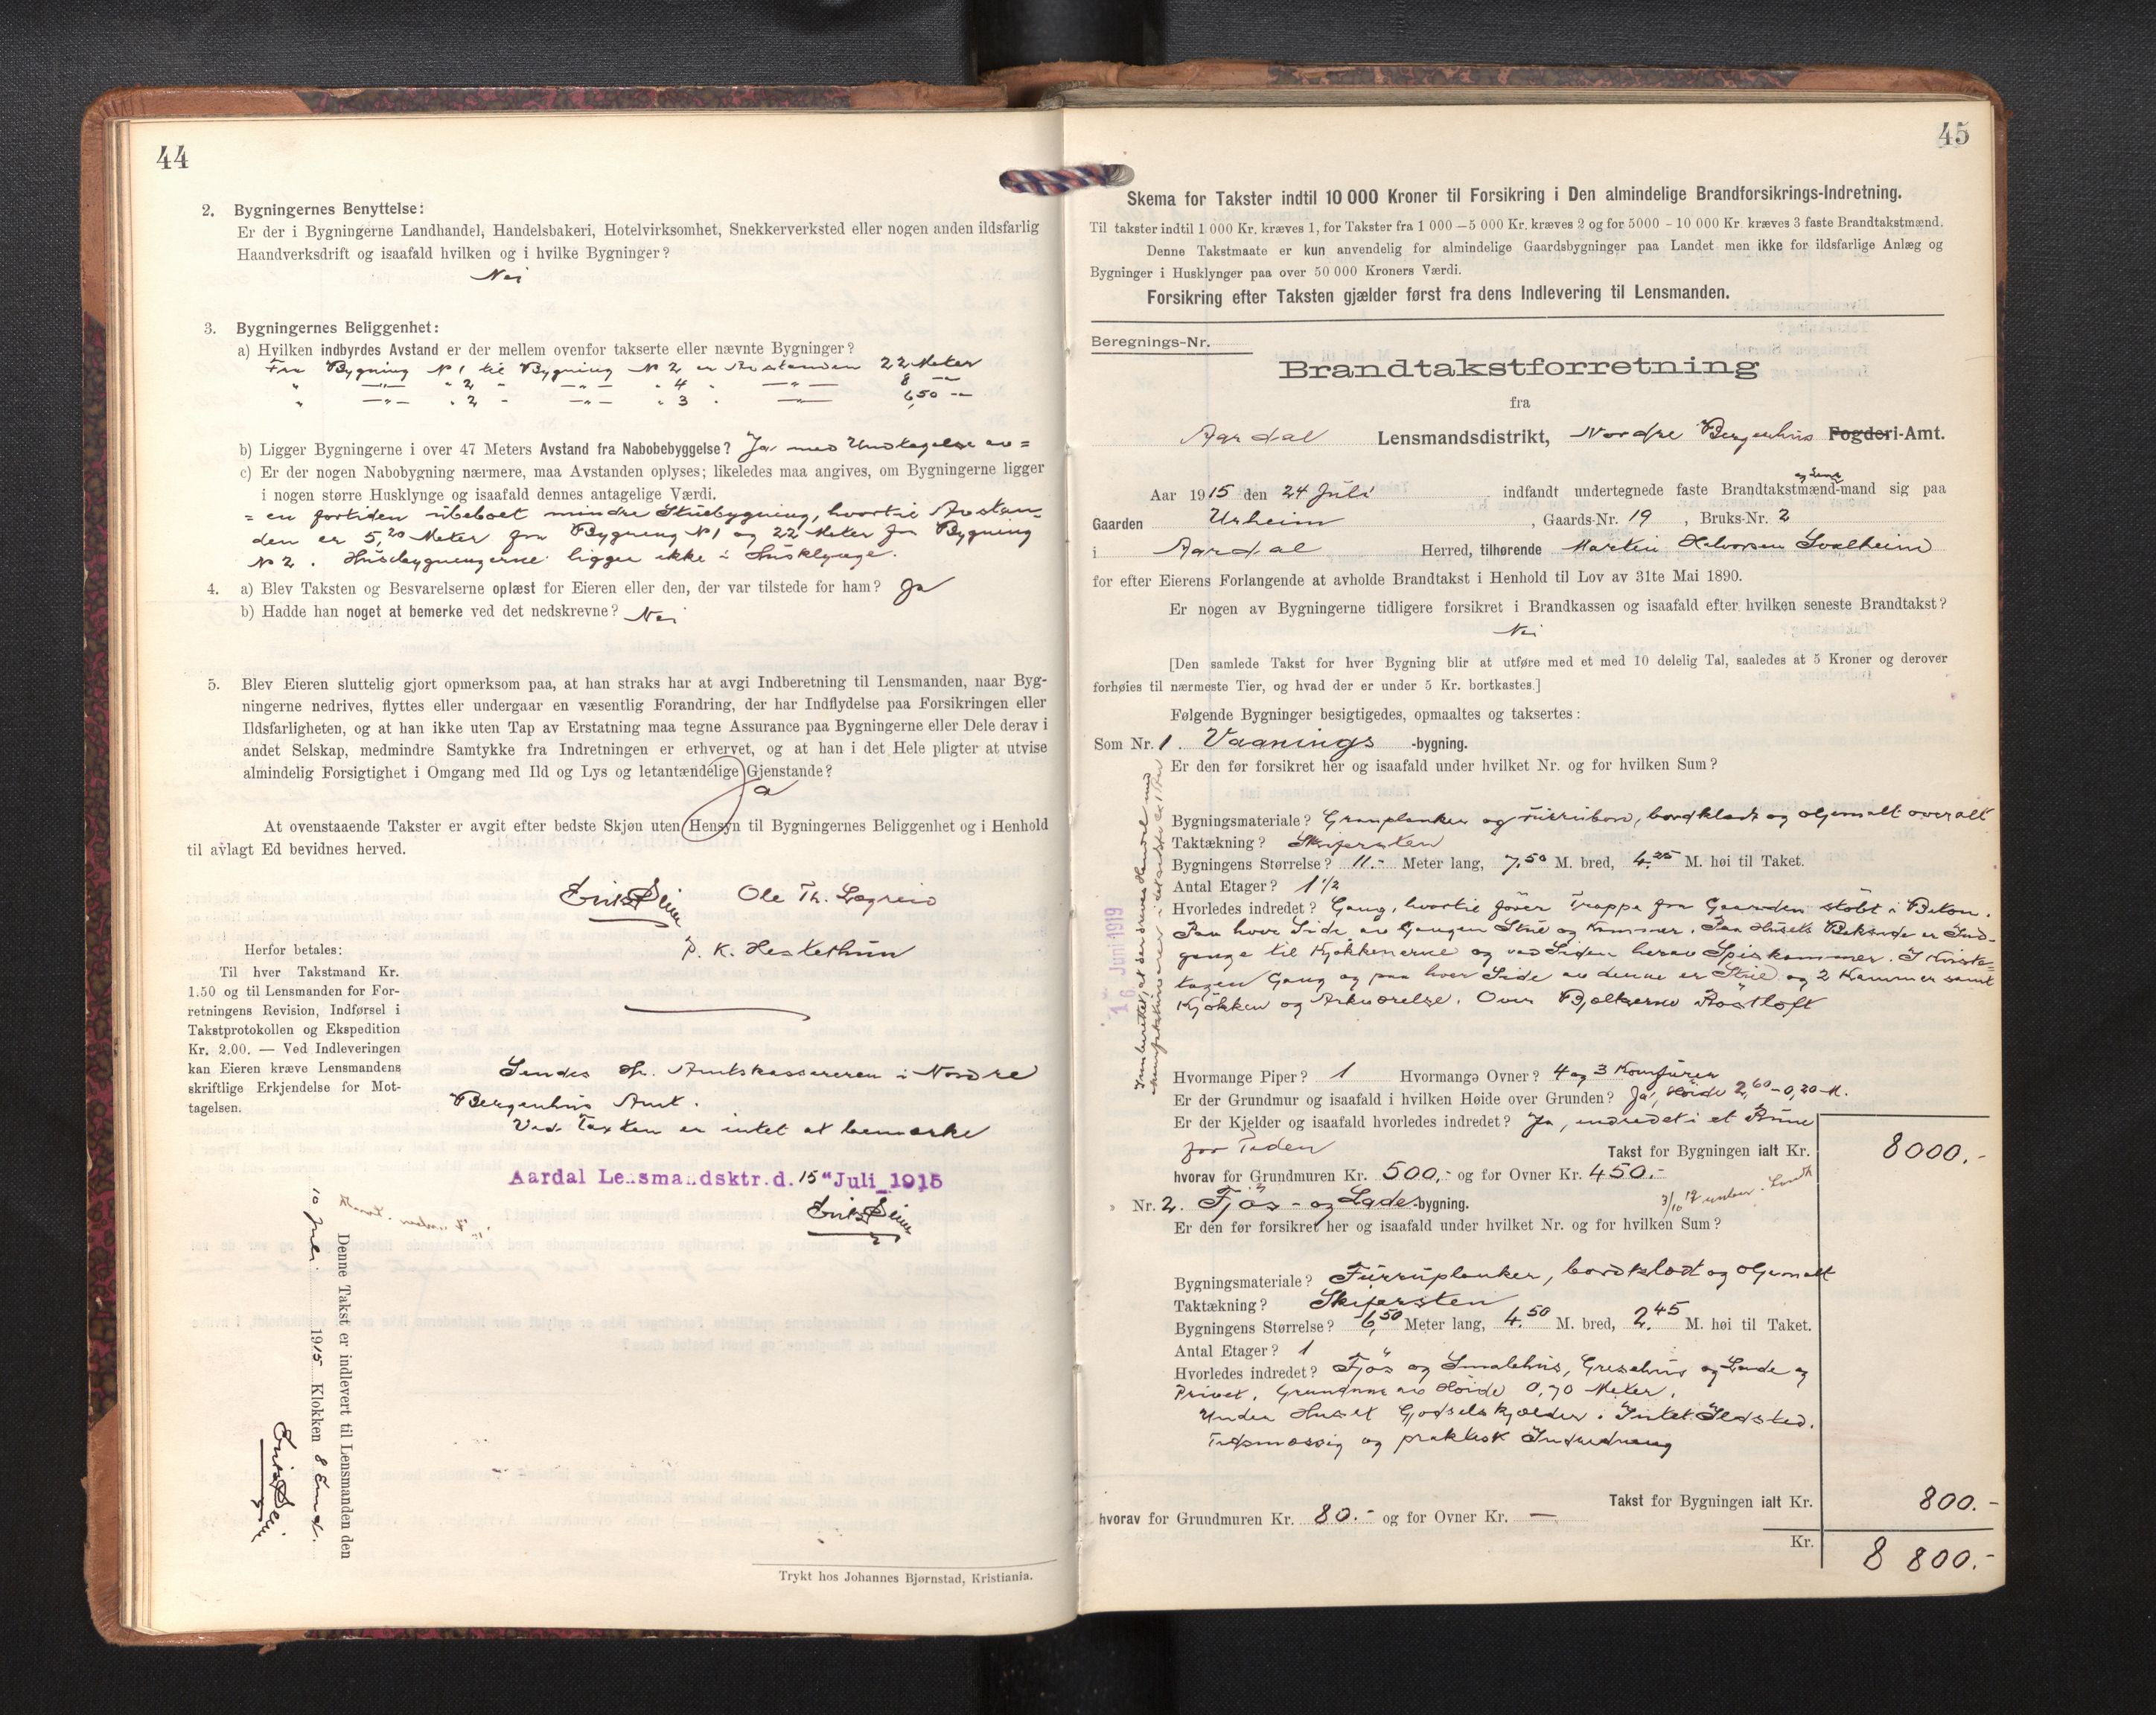 44
2. Bygningernes Benyttelse:
Er der i Bygningerne Landhandel, Handelsbakeri, Hotelvirksomhet, Snekkerverksted eller nogen anden ildsfarlig
Haandverksdrift og isaafald hvilken og i hvilke Bygninger?
Nei
3. Bygningernes Beliggenhet:
a) Hvilken indbyrdes Avstand er der mellem ovenfor takserte eller nævnte Bygninger?
Fra Bygning N 1 til Bygning N 2 er Avstanden 22 Meter
" —"— " 2 " —"— " 4 " —"— 8 —"—
" —"— " 2 " —"— " 3 " —"— 6,50 —"—
b) Ligger Bygningerne i over 47 Meters Avstand fra Nabobebyggelse? Ja med Undtagelse av =
c) Er der nogen Nabobygning nærmere, maa Avstanden oplyses; likeledes maa angives, om Bygningerne ligger
i nogen større Husklynge og isaafald dennes antagelige Værdi.
= en fortiden ubeboet mindre Stuebygning, hvortil Avstan-
den er 5,20 Meter fra Bygning N 1 og 22 Meter fra Bygning
N 2. Husbygningerne ligger ikke i Husklynge.
4. a) Blev Taksten og Besvarelserne oplæst for Eieren eller den, der var tilstede for ham? Ja
b) Hadde han noget at bemerke ved det nedskrevne? Nei
5. Blev Eieren sluttelig gjort opmerksom paa, at han straks har at avgi Indberetning til Lensmanden, naar Byg-
ningerne nedrives, flyttes eller undergaar en væsentlig Forandring, der har Indflydelse paa Forsikringen eller
Ildsfarligheten, og at han ikke uten Tap av Erstatning maa tegne Assurance paa Bygningerne eller Dele derav i
andet Selskap, medmindre Samtykke fra Indretningen er erhvervet, og at han i det Hele pligter at utvise
almindelig Forsigtighet i Omgang med Ild og Lys og letantændelige Gjenstande?
Ja
At ovenstaaende Takster er avgit efter bedste Skjøn uten Hensyn til Bygningernes Beliggenhet og i Henhold
til avlagt Ed bevidnes herved.
Ole Th. Lægreid
P. K. Hestethun
Herfor betales:
Til hver Takstmand Kr.
1.50 og til Lensmanden for For-
retningens Revision, Indførsel i
Takstprotokollen og Ekspedition
Kr. 2.00. — Ved Indleveringen
kan Eieren kræve Lensmandens
skriftlige Erkjendelse for Mot-
tagelsen.
Sendes Hr. Amtskassereren i Nordre
Bergenhus Amt.
Ved Taxten er intet at bemærke
Aardal Lensmandsktr. d. 15 " Juli 1915
Denne Takst er indlevert til Lensmanden den
10 Juli 1915 Klokken 8 Emd.
Trykt hos Johannes Bjørnstad, Kristiania.
45
Skema for Takster indtil 10 000 Kroner til Forsikring i Den almindelige Brandforsikrings-Indretning.
Til takster indtil 1 000 Kr. kræves 1, for Takster fra 1 000 — 5 000 Kr. kræves 2 og for 5000 - 10 000 Kr. kræves 3 faste Brandtakstmænd.
Denne Takstmaate er kun anvendelig for almindelige Gaardsbygninger paa Landet men ikke for ildsfarlige Anlæg og
Bygninger i Husklynger paa over 50 000 Kroners Værdi.
Forsikring efter Taksten gjælder først fra dens Indlevering til Lensmanden.
Beregnings-Nr.
Brandtakstforretning
fra
Aardal Lensmandsdistrikt, Nordre Bergenhus Fogderi-Amt.
Aar 1915 den 24 Juli indfandt undertegnede faste Brandtakstmænd-mand sig paa
Gaarden Urheim, Gaards-Nr. 19, Bruks-Nr. 2
i Aardal Herred, tilhørende Martin Halvorsen Svalheim
for efter Eierens Forlangende at avholde Brandtakst i Henhold til Lov av 31te Mai 1890.
Er nogen av Bygningerne tidligere forsikret i Brandkassen og isaafald efter hvilken seneste Brandtakst?
Nei
[Den samlede Takst for hver Bygning blir at utføre med et med 10 delelig Tal, saaledes at 5 Kroner og derover
forhøies til nærmeste Tier, og hvad der er under 5 Kr. bortkastes.]
Følgende Bygninger besigtigedes, opmaaltes og taksertes:
Som Nr. 1. Vaanings-bygning.
Er den før forsikret her og isaafald under hvilket Nr. og for hvilken Sum?
Bygningsmateriale? Granplanker og , bordklædt og oljemalt overalt
Taktækning? Skifersten
Bygningens Størrelse? 11.- Meter lang, 7,50 M. bred, 4,25 M. høi til Taket.
Antal Etager? 1 1/2
Hvorledes indredet? Gang, hvortil fører Trappe fra Gaarden støbt i Beton.
Paa hver Side av Gangen Stue og Kammer. Paa Husets Bakside er Ind-
gange til Kjøkkenerne og ved Siden herav Spiskammer. I Kviste-
tagen Gang og paa hver Side av denne er Stue og 2 Kammer samt
Kjøkken og Arkværelse. Over Bjælkerne Røstloft
16 Juni 1919
Hvormange Piper? 1 Hvormange Ovner? 4 og 3 Komfurer
Er der Grundmur og isaafald i hvilken Høide over Grunden? Ja, Høide 2,60 - 0,20 M.
Er der Kjelder og isaafald hvorledes indredet? Ja, indredet i et Rum
for Tiden
Takst for Bygningen ialt Kr. 8000.-
hvorav for Grundmuren Kr. 500,- og for Ovner Kr. 450.-
" Nr. 2. Fjøs - og Lade-bygning.
Er den før forsikret her og isaafald under hvilket Nr. og for hvilken Sum?
Bygningsmateriale? Furruplanker, bordklædt og oljemalt
Taktækning? Skifersten
Bygningens Størrelse? 6,50 Meter lang, 4.50 M. bred, 2.45 M. høi til Taket.
Antal Etager? 1
Hvorledes indredet? Fjøs og Smalehus, Grisehus og Lade og
Privet. Grundmur av Høide 0,70 Meter.
Under Huset Gjødselskjælder. Intet Ildsted.
Tidsmæssig og praktisk Indredning
Takst for Bygningen ialt Kr. 800.-
hvorav for Grundmuren Kr. 80.- og for Ovner Kr. —
Kr. 8 800.-